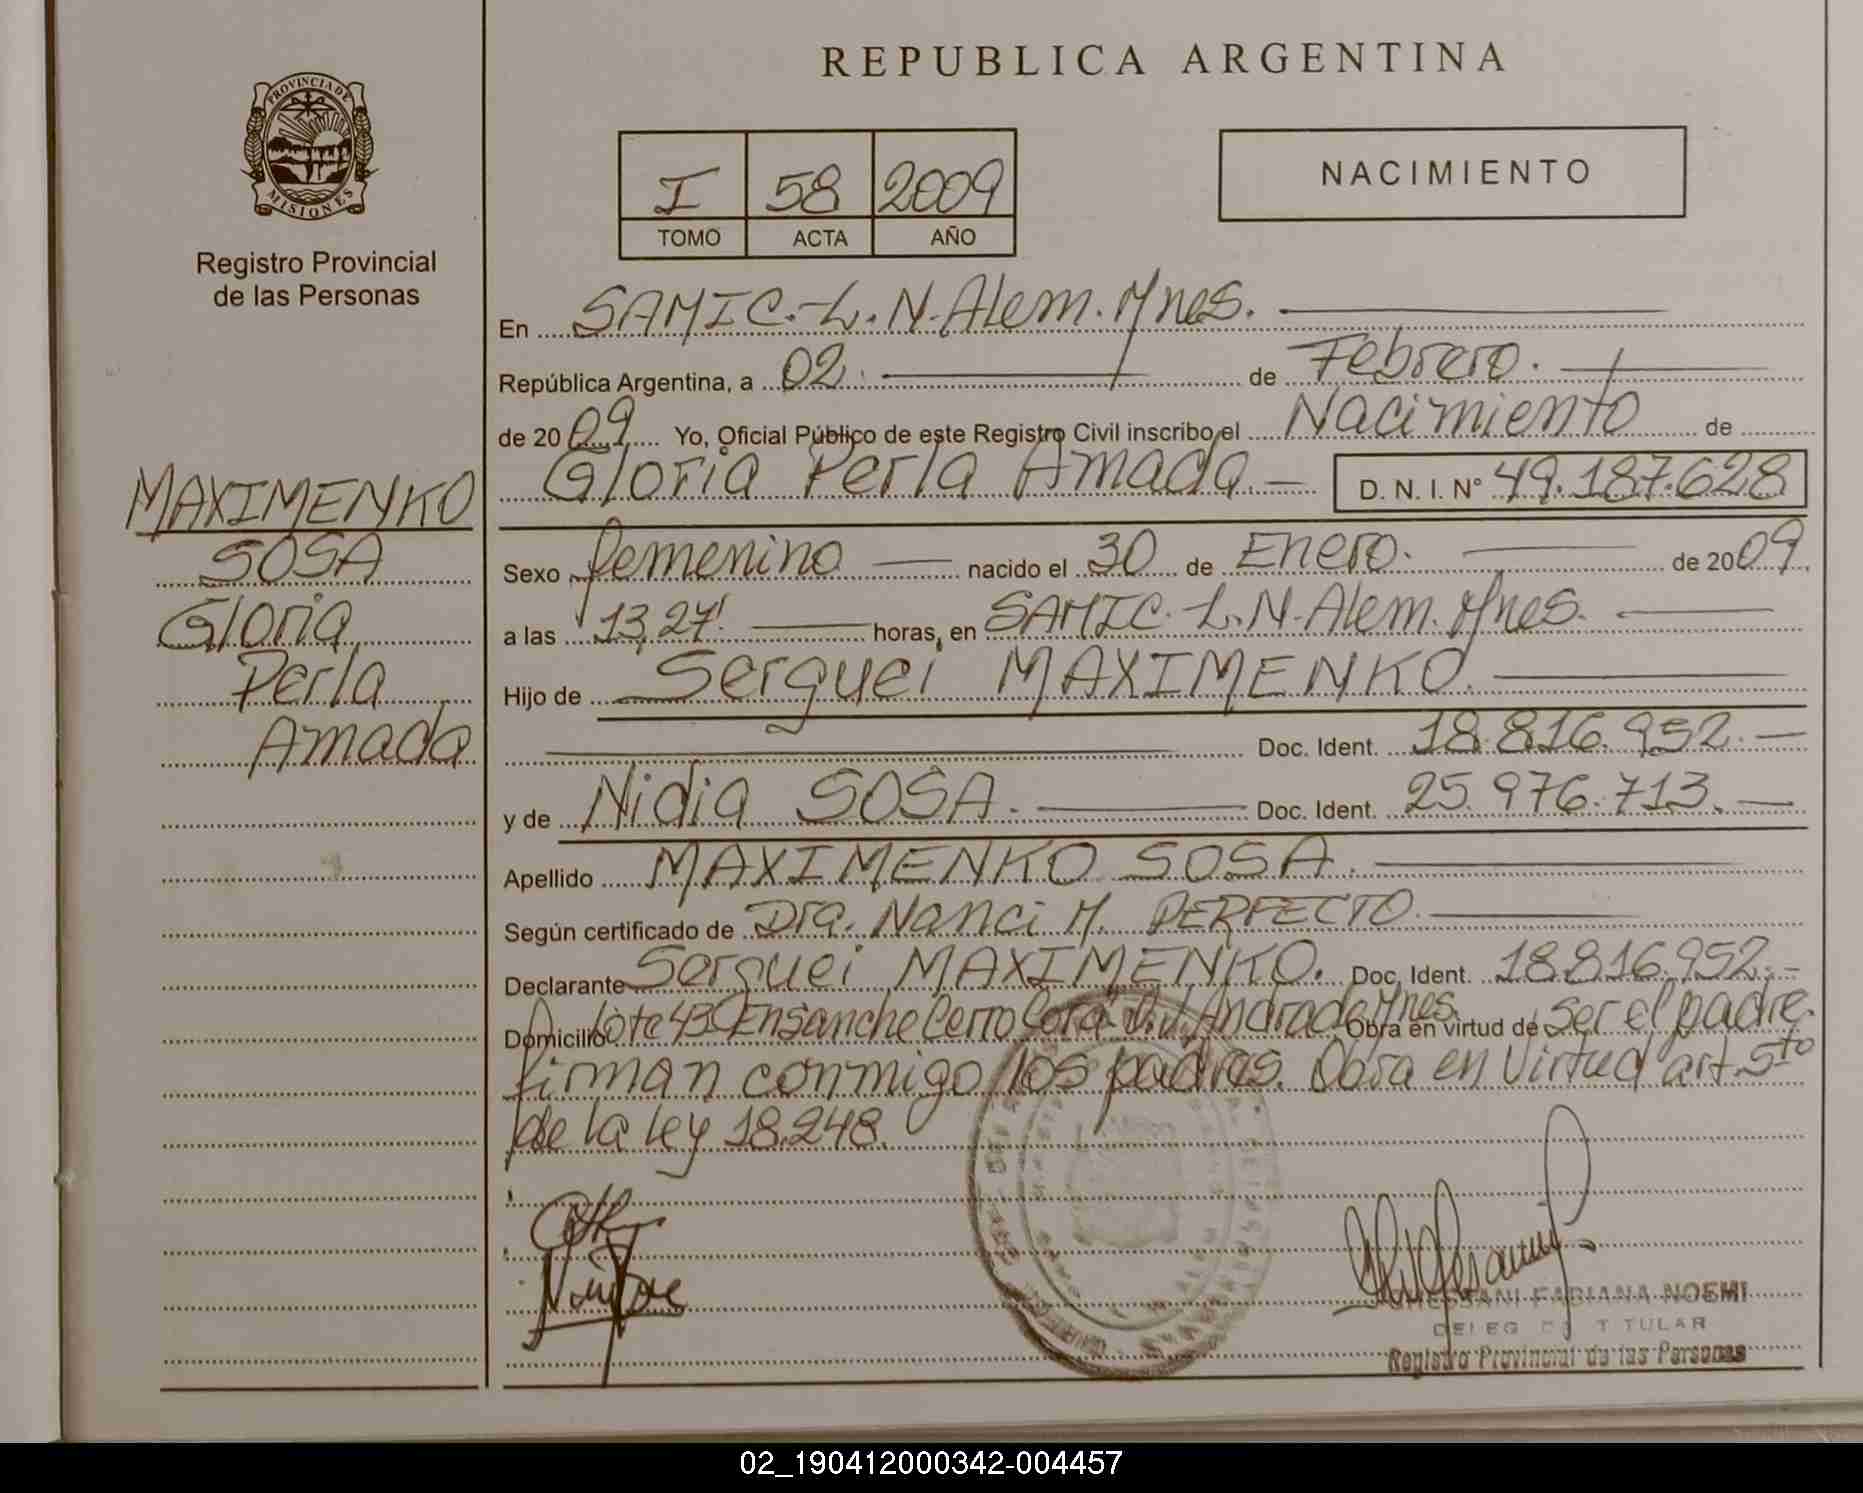 REPUBLICA ARGENTINA
PROVINCIA DE
MISIONES
Registro Provincial
de las Personas
I 58 2009
TOMO ACTA AÑO
NACIMIENTO
En SAMIC.-L.N.Alem.Mnes.
República Argentina, a 02. de Febrero.
de 2009 Yo, Oficial Público de este Registro Civil inscribo el Nacimiento de
Gloria Perla Amada.- D. N. I. N° 49.187.628
MAXIMENKO
SOSA
Gloria
Perla
Amada
Sexo femenino nacido el 30 de Enero. de 2009.
a las 13,27' horas, en SAMIC. L.N.Alem.Mnes.
Hijo de Serguei MAXIMENKO.
Doc. Ident. 18.816.952.-
y de Nidia SOSA. Doc. Ident. 25.976.713.-
Apellido MAXIMENKO SOSA.
Según certificado de Dra. Nanci M. PERFECTO.
Declarante Serguei MAXIMENKO. Doc. Ident. 18.816.952.-
Domicilio Lote 43 Ensanche Cerro Corá Andrade Mnes. Obra en virtud de ser el padre.
firman conmigo los padres. Obra en virtud art. 5to
de la ley 18.248.
FABIANA NOEMI
TITULAR
Registro Provincial de las Personas
02_190412000342-004457